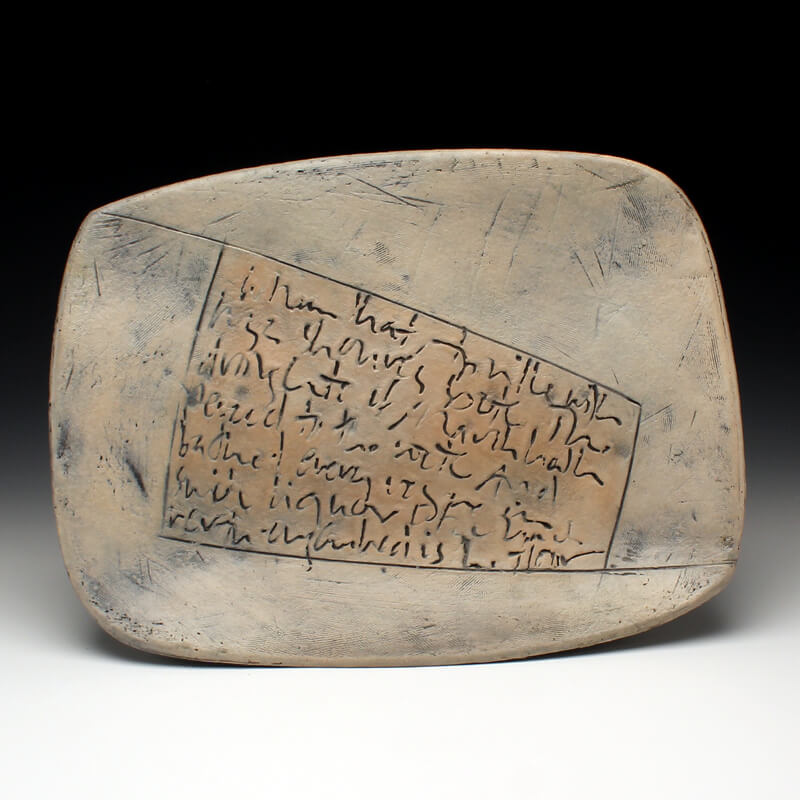 Whan that Aprille with
his shoures soote The
droghte of March hath
Perced to the roote And
bathed every
swich liquor
engendred is flour